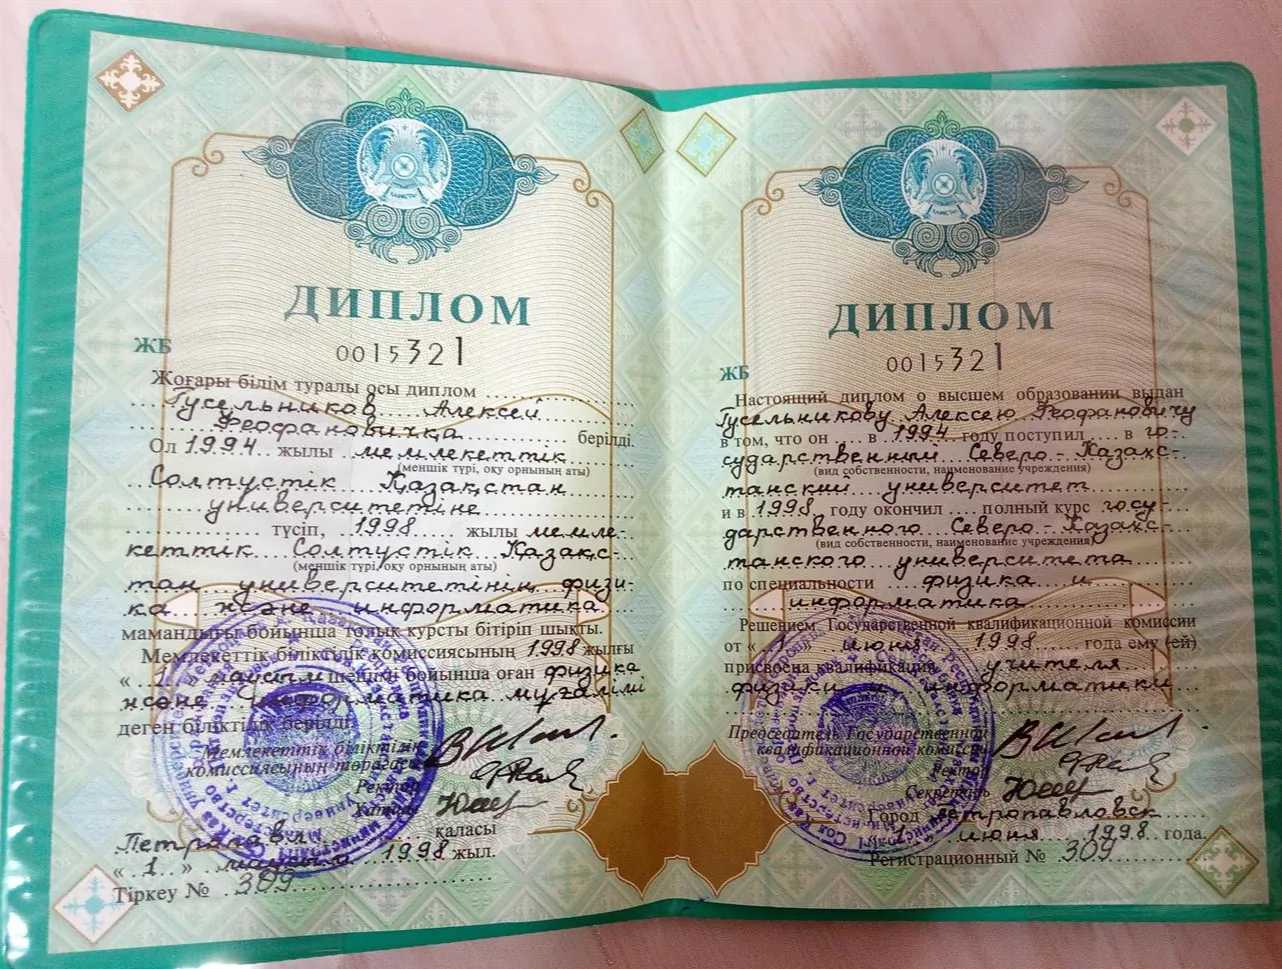 ДИПЛОМ
ЖБ
0015321
Жоғары білім туралы осы диплом
Гусельников Алексей
Феофановичка берілді.
Ол 1994 жылы мемлекеттік
(меншік түрі, оқу орнының аты)
Солтустік Қазақстан
университетіне
түсіп, 1998 жылы мемле-
кеттік Солтустік Қазақс-
(меншік түрі, оқу орнының аты)
тан университетінің физи-
ка және информатика
мамандығы бойынша толық курсты бітіріп шықты.
Мемлекеттік біліктілік комиссиясының 1998 жылғы
« 1 » маусым шешімі бойынша оған физика
және информатика мұғалімі
деген біліктілік берілді.
Мемлекеттік біліктілік
комиссиясының төрағасы
Ректор
Хатшы
Петропавл қаласы
« 1 » маусым 1998 жыл.
Тіркеу № 309
ДИПЛОМ
ЖБ
0015321
Настоящий диплом о высшем образовании выдан
Гусельникову Алексею Феофановичу
в том, что он в 1994 году поступил в го-
сударственный Северо-Казахс-
(вид собственности, наименование учреждения)
танский университет
и в 1998 году окончил полный курс госу-
дарственного Северо-Казахс-
(вид собственности, наименование учреждения)
танского университета
по специальности физика и
информатика
Решением Государственной квалификационной комиссии
от « 1 » июня 1998 года ему (ей)
присвоена квалификация учителя
физики и информатики
Председатель Государственной
квалификационной комиссии
Ректор
Секретарь
Город Петропавловск
« 1 » июня 1998 года.
Регистрационный № 309